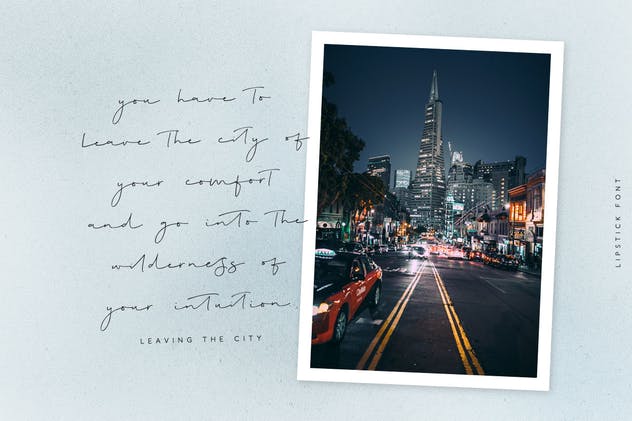 you have to
leave the city of
your comfort
and go into the
wilderness of
your intuition.
LEAVING THE CITY
LIPSTICK FONT